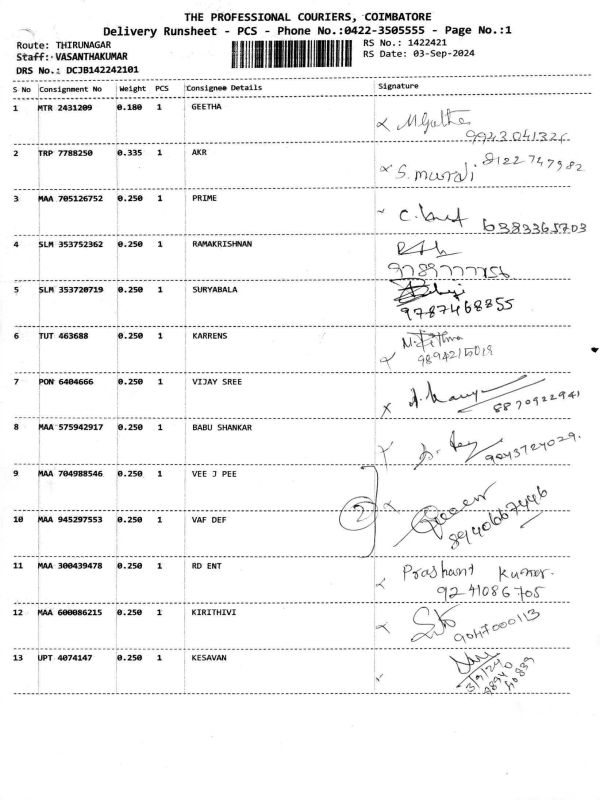 THE PROFESSIONAL COURIERS, COIMBATORE
Delivery Runsheet - PCS - Phone No.:0422-3505555 - Page No.:1
Route: THIRUNAGAR RS No.: 1422421
Staff: VASANTHAKUMAR RS Date: 03-Sep-2024
DRS No.: DCJB142242101
S No Consignment No Weight PCS Consignee Details Signature
1 MTR 2431209 0.180 1 GEETHA
9943041326
2 TRP 7788250 0.335 1 AKR
S. murali 8122747982
3 MAA 705126752 0.250 1 PRIME
6383365703
4 SLM 353752362 0.250 1 RAMAKRISHNAN
5 SLM 353720719 0.250 1 SURYABALA
9787468855
6 TUT 463688 0.250 1 KARRENS
9894215019
7 PON 6404666 0.250 1 VIJAY SREE
8870922941
8 MAA 575942917 0.250 1 BABU SHANKAR
9043724029.
9 MAA 704988546 0.250 1 VEE J PEE
2
10 MAA 945297553 0.250 1 VAF DEF
8940667446
11 MAA 300439478 0.250 1 RD ENT
Prashant Kumar.
9241086705
12 MAA 600086215 0.250 1 KIRITHIVI
9047000113
13 UPT 4074147 0.250 1 KESAVAN
3/9/24
98940
40839